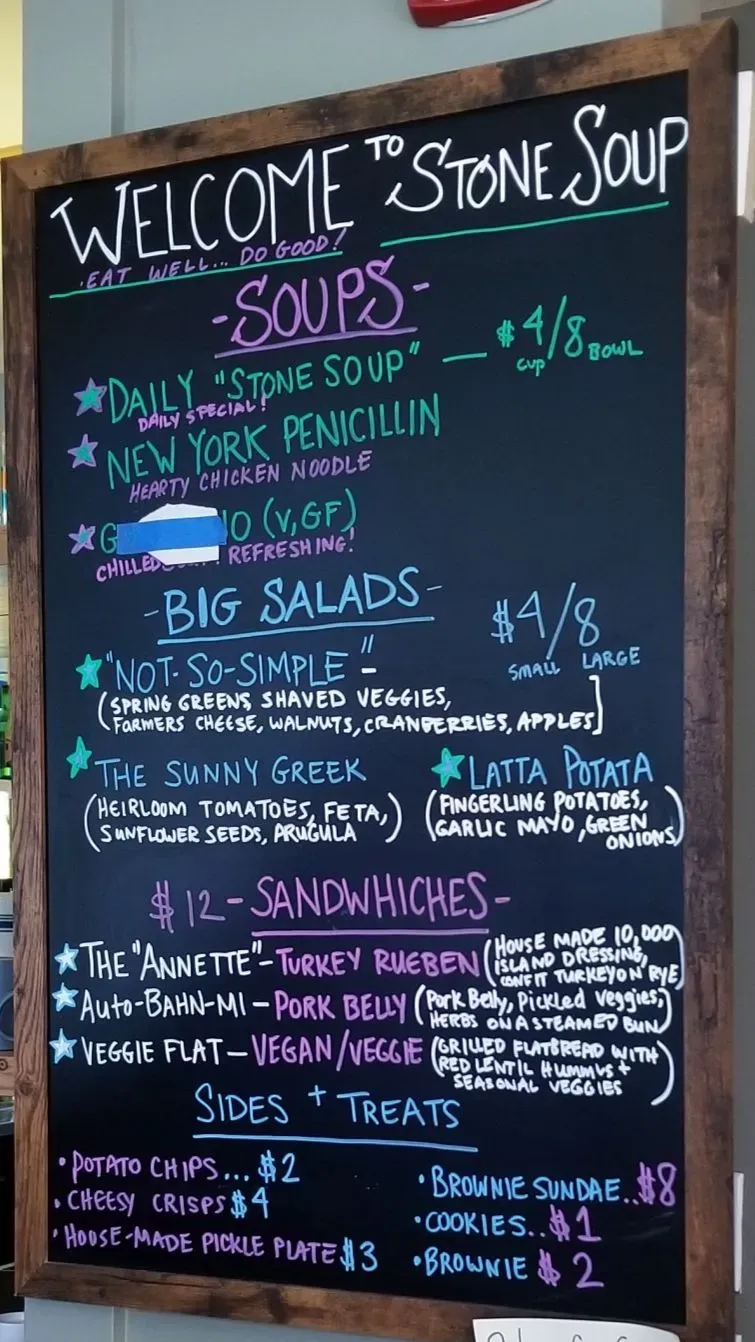 WELCOME TO STONE SOUP
EAT WELL... DO GOOD!
-SOUPS-
DAILY "STONE SOUP" — $4/8
CUP BOWL
DAILY SPECIAL!
NEW YORK PENICILLIN
HEARTY CHICKEN NOODLE
(V,GF)
CHILLED REFRESHING!
-BIG SALADS-
$4/8
SMALL LARGE
"NOT-SO-SIMPLE"-
(SPRING GREENS SHAVED VEGGIES,
FARMERS CHEESE, WALNUTS, CRANBERRIES, APPLES]
THE SUNNY GREEK
(HEIRLOOM TOMATOES, FETA,
SUNFLOWER SEEDS, ARUGULA)
LATTA POTATA
(FINGERLING POTATOES,
GARLIC MAYO, GREEN
ONIONS)
$12-SANDWHICHES-
THE "ANNETTE"-TURKEY RUEBEN (HOUSE MADE 10,000
ISLAND DRESSING,
CONFIT TURKEY ON RYE)
AUTO-BAHN-MI-PORK BELLY (Pork Belly, Pickled Veggies,
HERBS ON A STEAMED BUN)
VEGGIE FLAT-VEGAN/VEGGIE (GRILLED FLATBREAD WITH
RED LENTIL HUMMUS +
SEASONAL VEGGIES)
SIDES + TREATS
•POTATO CHIPS...$2
•CHEESY CRISPS $4
•HOUSE-MADE PICKLE PLATE $3
•BROWNIE SUNDAE..$8
•COOKIES..$1
•BROWNIE $2